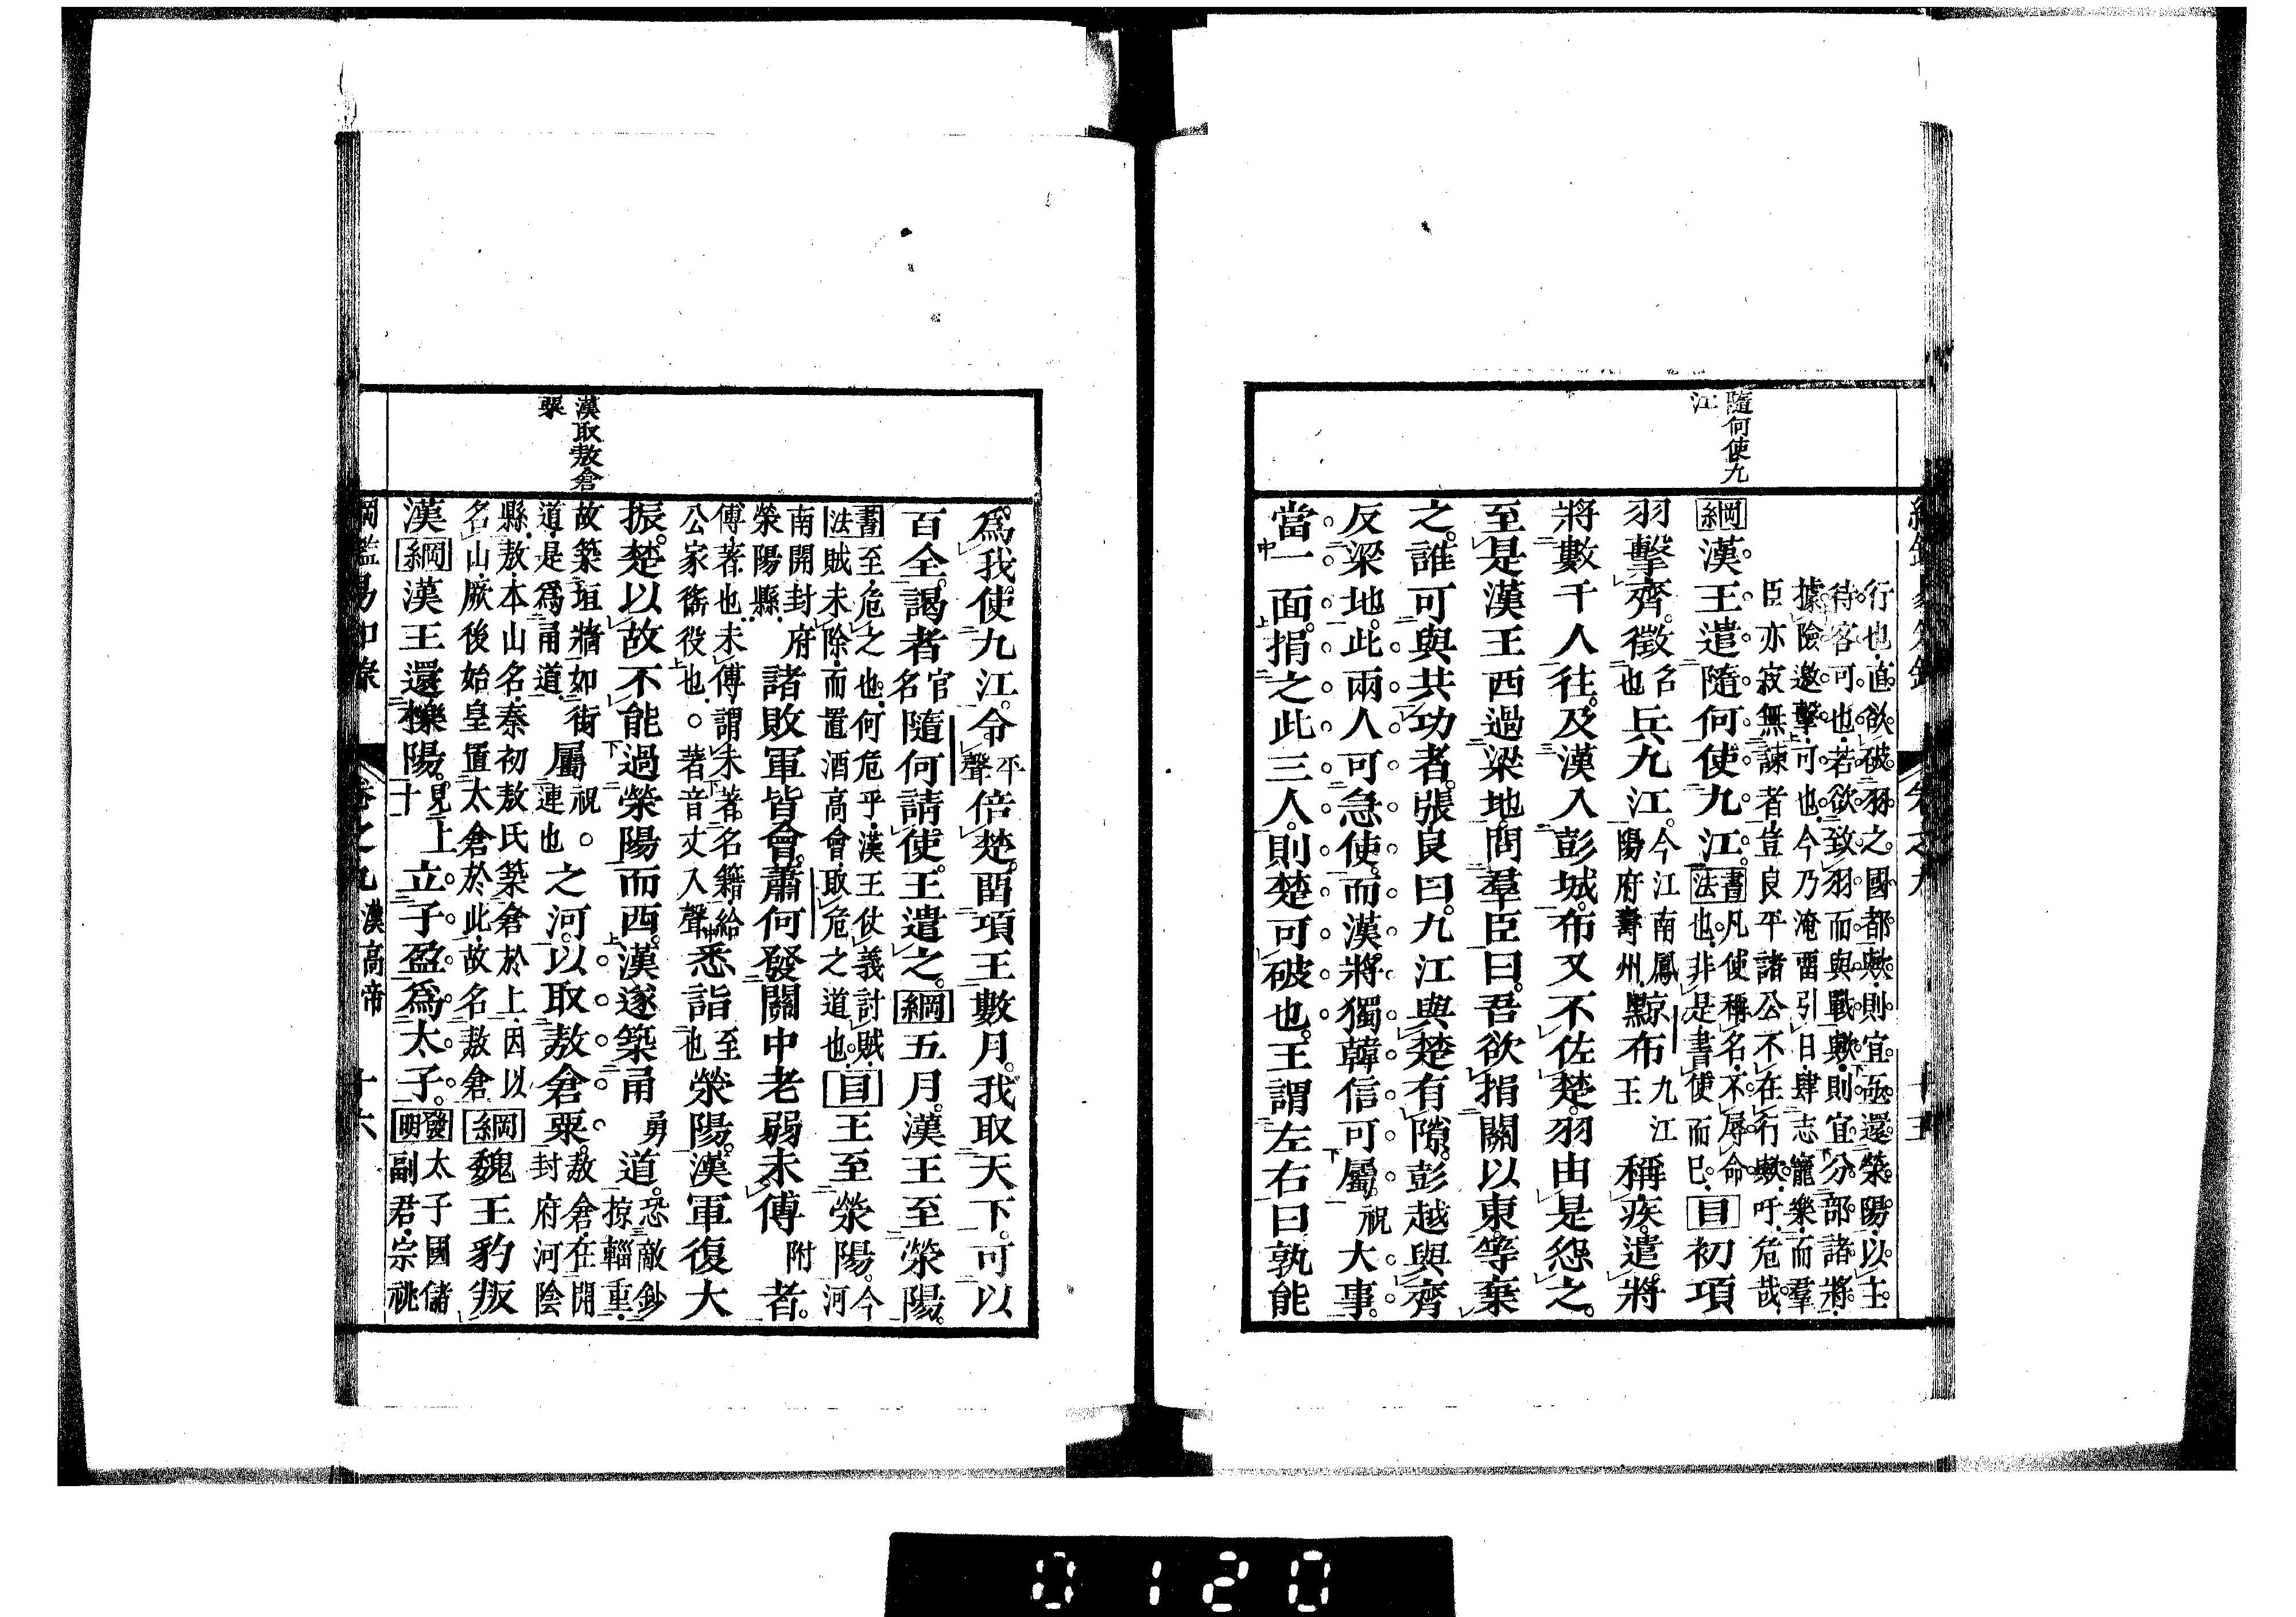 隨何使九
江
行也直欲破羽之國都歟則宜亟還滎陽以主
待客可也若欲致羽而與戰歟則宜分部諸將
據險邀擊可也今乃淹畱引日肆志寵樂而羣
臣亦寂無諫者豈良平諸公不在行歟吁危哉
綱漢王遣隨何使九江書法凡使稱名不辱命也非是書使而已目初項
羽擊齊徵召也兵九江今江南鳳陽府壽州黥京布九江王稱疾遣將
將數千人往及漢入彭城布又不佐楚羽由是怨之
至是漢王西過梁地問羣臣曰吾欲捐關以東等棄
之誰可與共功者張良曰九江與楚有隙彭越與齊
反梁地此兩人可急使而漢將獨韓信可屬祝大事
當一面捐之此三人則楚可破也王謂左右曰孰能
漢取敖倉
粟
爲我使九江令平聲倍楚畱項王數月我取天下可以
百全謁者官名隨何請使王遣之綱五月漢王至滎陽
書法至危之也何危乎漢王仗義討賊賊未除而置酒高會取危之道也目王至滎陽今河
南開封府滎陽縣諸敗軍皆會蕭何發關中老弱未傅附者
傅著也未傅謂未著名籍給公家徭役也○著音丈入聲悉詣至也滎陽漢軍復大
振楚以故不能過滎陽而西漢遂築甬勇道恐敵鈔掠輜重
故築垣牆如街道是爲甬道屬祝○連也之河以取敖倉粟敖倉在開封府河陰
縣敖本山名秦初敖氏築倉於上因以名山厥後始皇置太倉於此故名敖倉綱魏王豹叛
漢綱漢王還櫟陽見上十立子盈爲太子發明太子國儲副君宗祧
卷之九 漢高帝 十六
0120